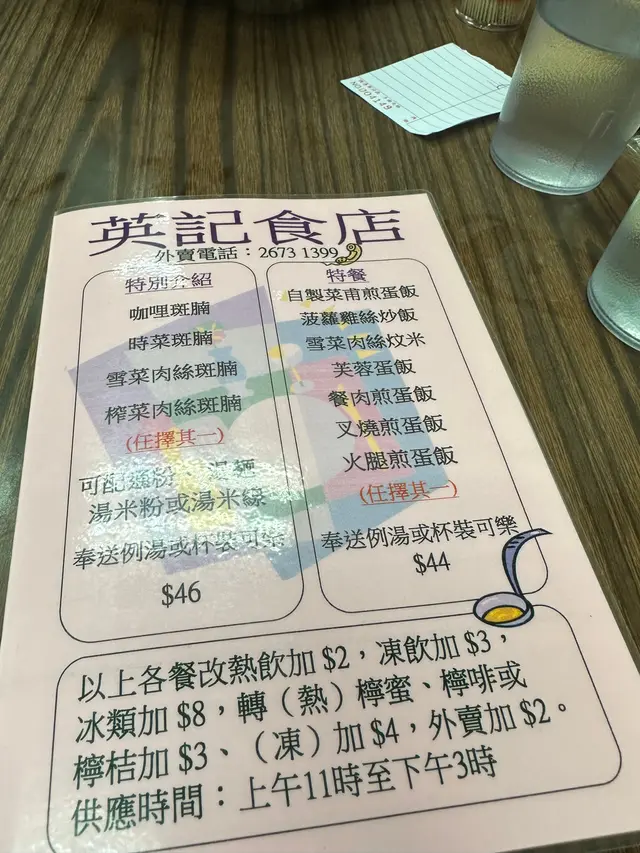 英記食店
外賣電話：2673 1399
特別介紹
咖哩斑腩
時菜斑腩
雪菜肉絲斑腩
榨菜肉絲斑腩
(任擇其一)
可配
湯米粉或湯米線
奉送例湯或杯裝可樂
$46
特餐
自製菜甫煎蛋飯
菠蘿雞絲炒飯
雪菜肉絲炆米
芙蓉蛋飯
餐肉煎蛋飯
叉燒煎蛋飯
火腿煎蛋飯
(任擇其一)
奉送例湯或杯裝可樂
$44
以上各餐改熱飲加 $2，凍飲加 $3，
冰類加 $8，轉（熱）檸蜜、檸啡或
檸桔加 $3、（凍）加 $4，外賣加 $2。
供應時間：上午11時至下午3時